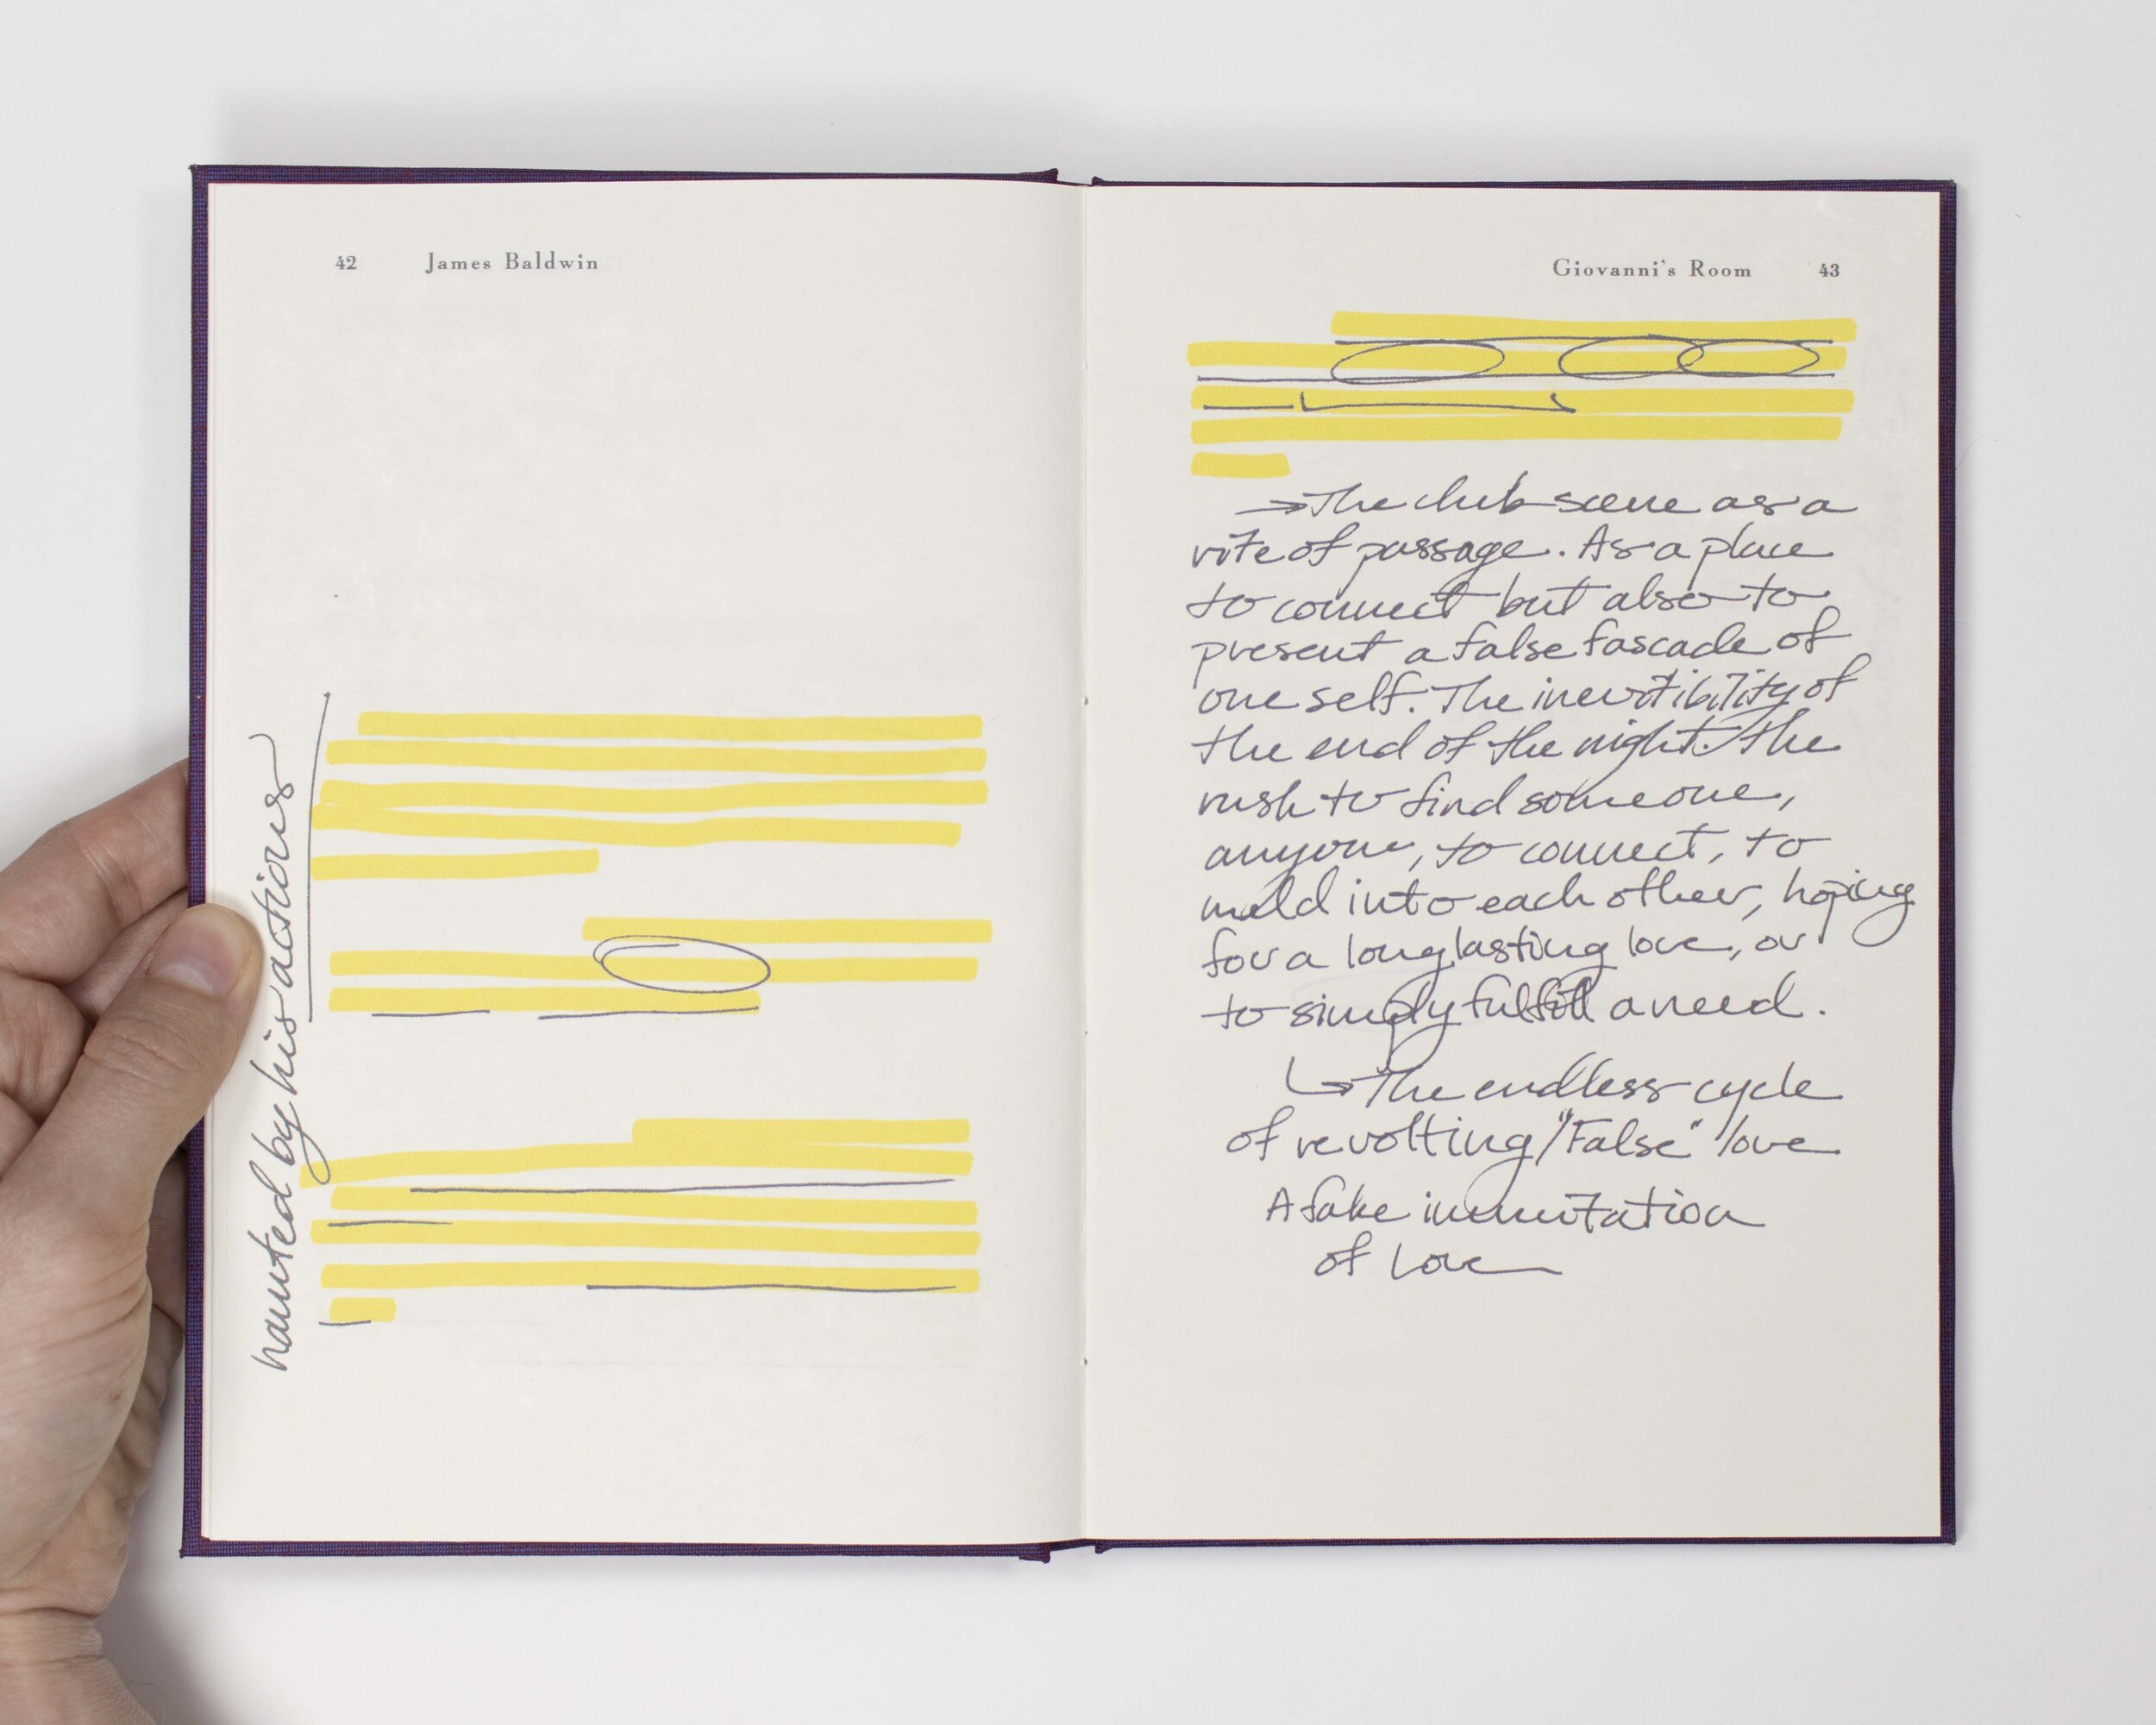 42 James Baldwin
haunted by his actions
Giovanni's Room 43
→The club scene as a
rite of passage. As a place
to connect but also to
present a false fascade of
one self. The inevitibility of
the end of the night. The
rush to find someone,
anyone, to connect, to
meld into each other, hoping
for a long lasting love, or
to simply fulfill a need.
↳The endless cycle
of revolting/"False" love
A fake immitation
of Love